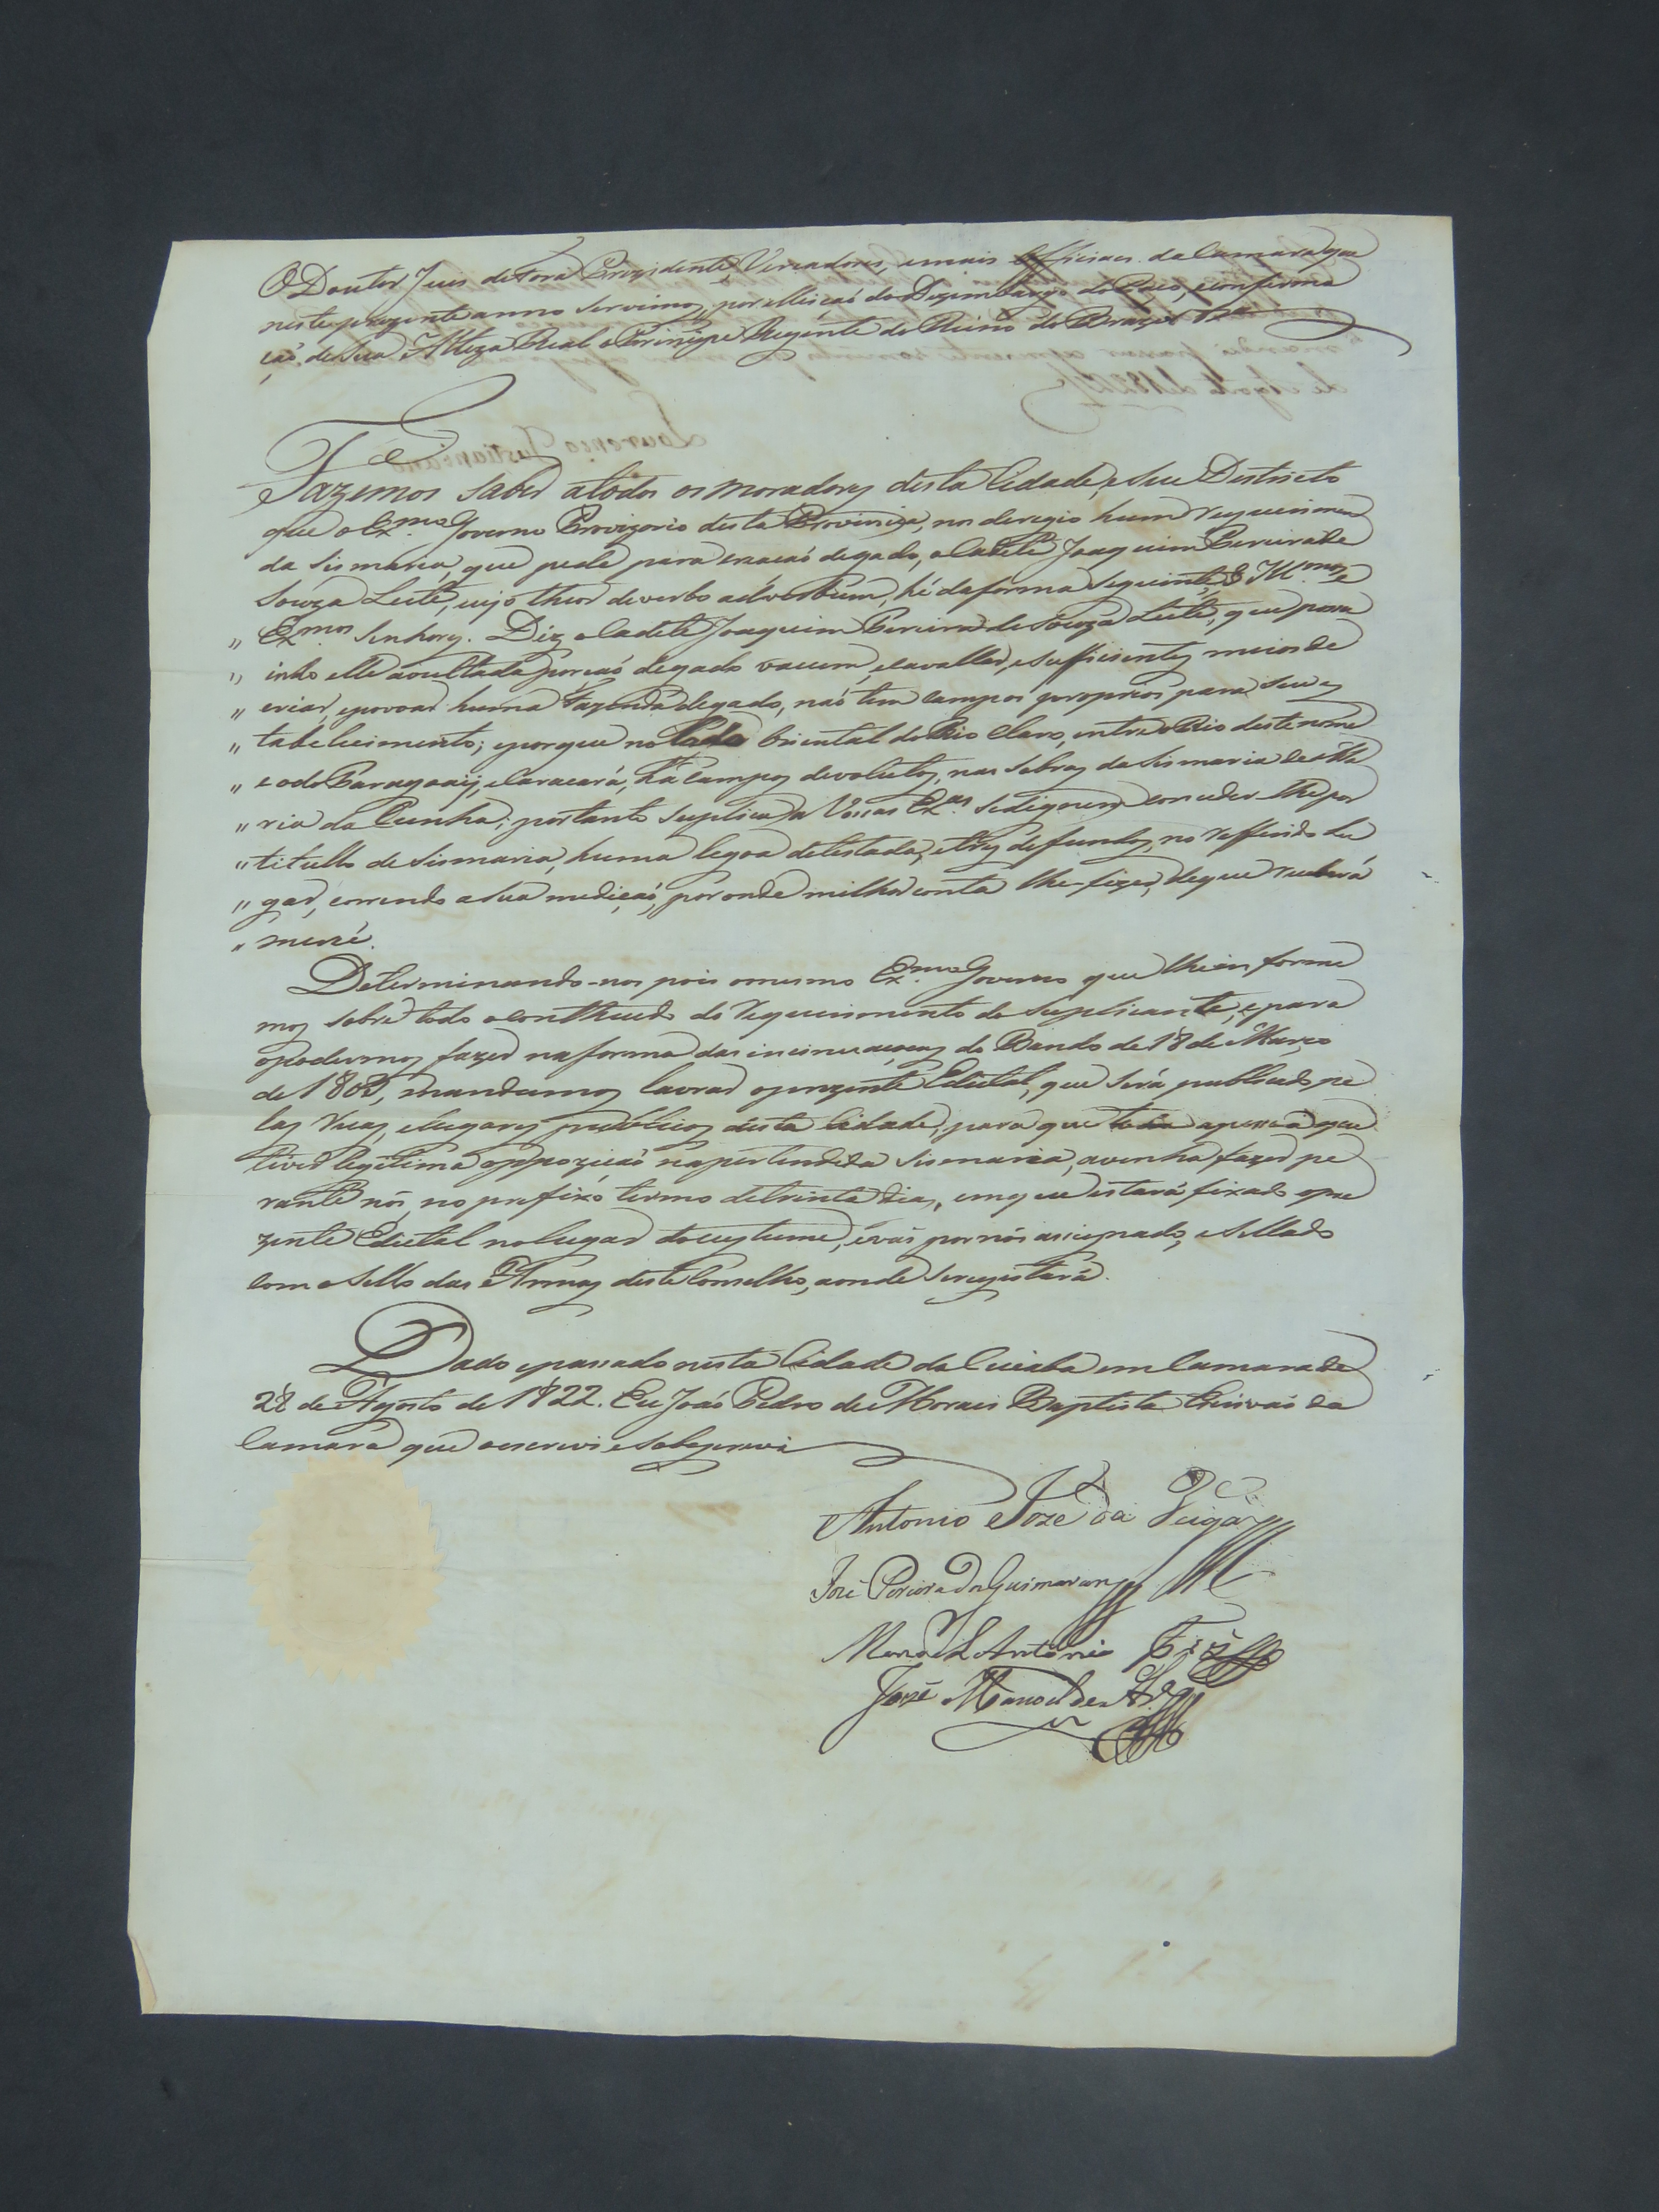 O Doutor Juis de Fora Prezidente, Vereadores, e mais Officiaes da Camara que
neste prezente anno servimos, por elleiçaó do Dezembargo do Paço, e confirma
çaó de Sua Alteza Real o Principe Regente do Reino do Brazil &ª
Fazemos saber a todos os moradores desta Cidade, e seu Destricto
que o Ex.mo Governo Provizorio desta Provincia, nos deregio hum requerimen
da sismaria, que pede para creacaó de gado, o Cadete Joaquim Pereira de
Souza Leite, cujo theor de verbo adverbum, hé da forma seguinte, Ill.mos e
" Ex.mos Senhores. Diz o Cadete Joaquim Pereira de Souza Leite, que possu
" indo elle avultada porçaó de gado vacum, e cavallar, e sufficientes meios de
" criar, e povoar huma Fazenda de gado, naó tem campos proprios para seu es
" tabelecimento; e porque no lado Oriental do Rio Claro, entre o Rio deste nome
" e o do Paragoaÿ, e Caracará, há campos devolutos, nas sobras da sismaria de Ma
" ria da Cunha; portanto suplica a Vossas Ex.as se dignem conceder-lhe por
" titullo de sismaria, huma legoa de testada, e tres de fundos, no refferido lu
" gar, correndo a sua mediçaó, por onde milhor conta lhe fizer, de que receberá
" mercé.
Determinando-nos pois o mesmo Ex.mo Governo que lhe informe
mos sobre todo o contheudo do requerimento do suplicante, e para
o podermos fazer na forma das do Bando de 18 de Março
de mandamos lavrar o prezente Edictal, que será publicado pe
las ruas, e lugares publicos desta Cidade, para que toda a pessoa que
tiver legitima oppoziçaó na pertendida sismaria, a venha fazer pe
rante nós, no prefixo termo de trinta dias, em que estará fixado o pre
zente Edictal no lugar do custume, e vai por nós assignado, e sellado
com o sello das Armas deste Conselho, aonde se registará.
Dado e passado nesta Cidade do Cuiaba em Camara de
28 de Agosto de 1822. Eu Joaó Pedro de Moraes Baptista Escrivaó da
Camara que o escrevi e sobescrevi
Antonio Joze da Veiga
José Pereira Guimaraens
Manoel Antonio
José Manoel de